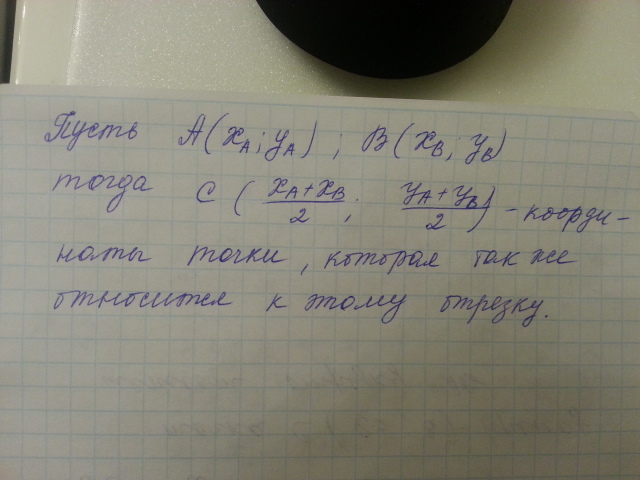 Пусть A(x_A; y_A) ; B(x_B; y_B)
тогда C ( (x_A+x_B)/2 ; (y_A+y_B)/2 ) - коорди-
наты точки, которая так же
относится к этому отрезку.